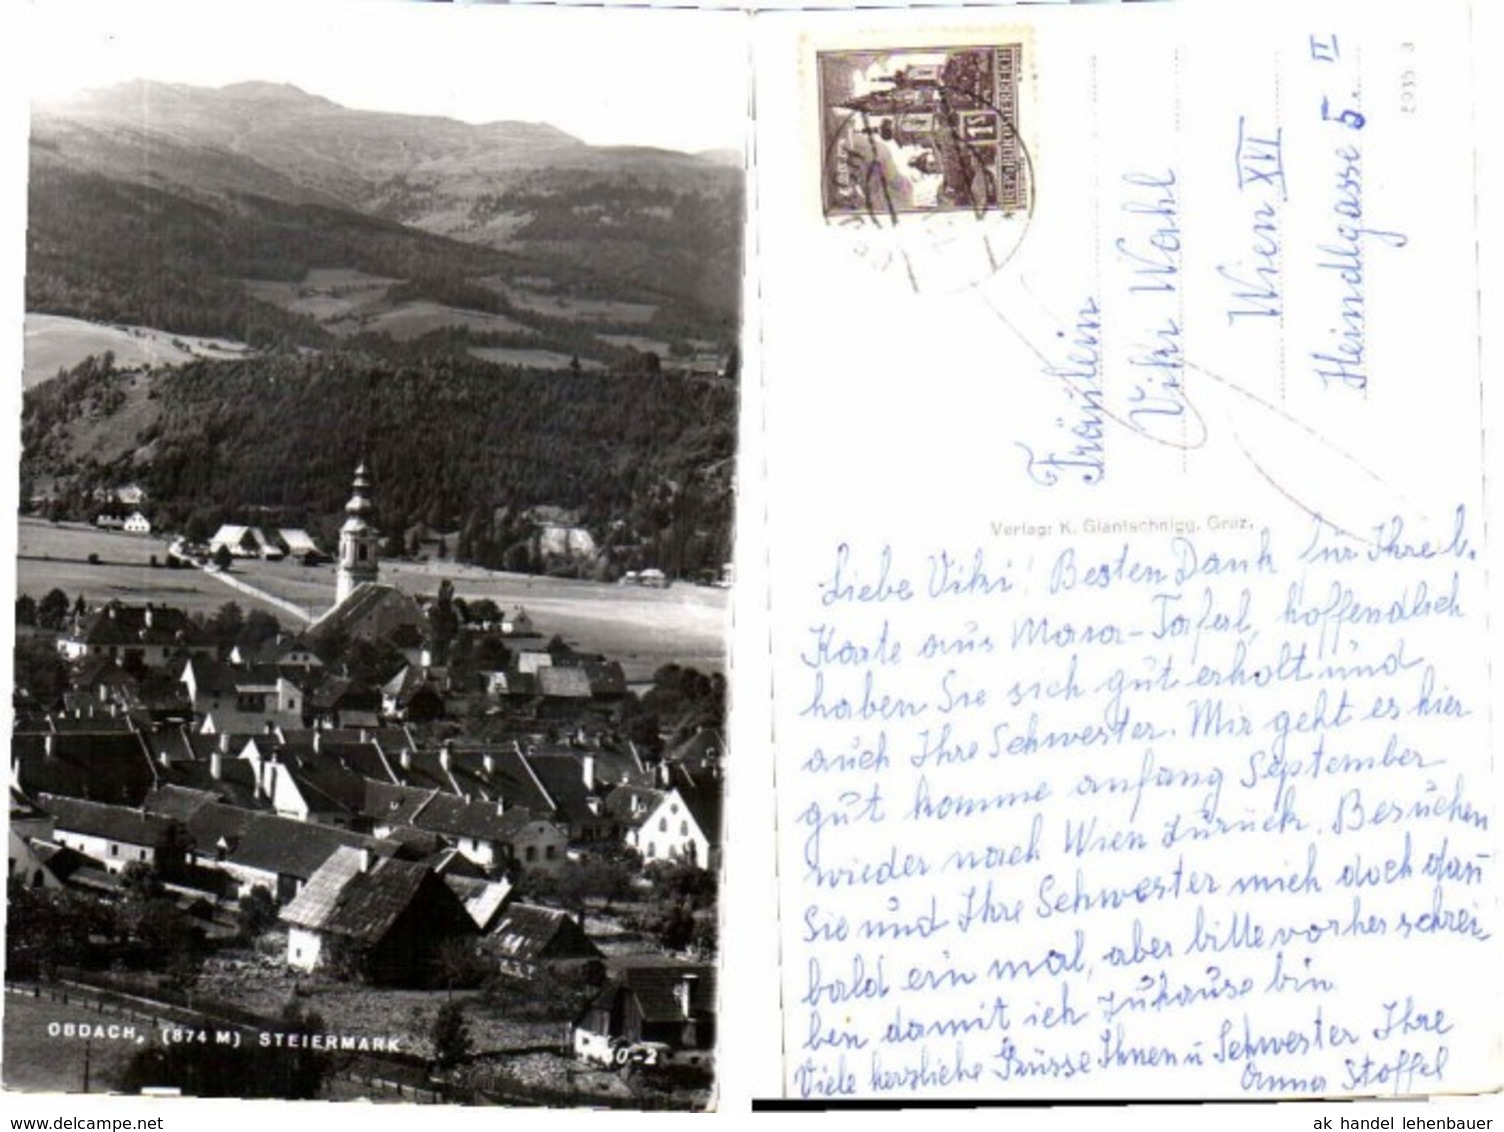 OBDACH, (874 M) STEIERMARK
60-2
REPUBLIK ÖSTERREICH
1S
Fräulein
Viki Wahl
Wien XVI
Heindlgasse 5. II
Verlag: K. Glantschnigg, Graz.
Liebe Viki! Besten Dank für Ihre l.
Karte aus Maria-Taferl, hoffendlich
haben Sie sich gut erholt und
auch Ihre Schwester. Mir geht es hier
gut komme anfang September
wieder nach Wien zurück. Besuchen
Sie und Ihre Schwester mich doch dan̄
bald ein mal, aber bitte vorher schrei-
ben damit ich zuhause bin
Viele herzliche Grüsse Ihnen u Schwester Ihre
Anna Stoffel
delcampe.net
ak handel lehenbauer